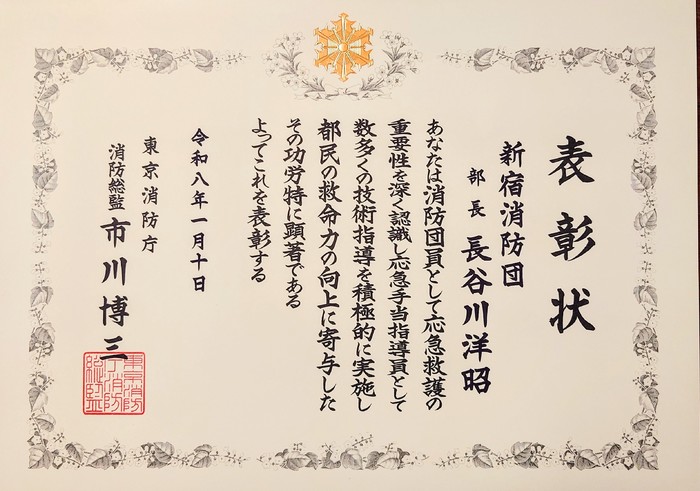 表彰状
新宿消防団
部長 長谷川洋昭
あなたは消防団員として応急救護の
重要性を深く認識し応急手当指導員として
数多くの技術指導を積極的に実施し
都民の救命力の向上に寄与した
その功労特に顕著である
よってこれを表彰する
令和八年一月十日
東京消防庁
消防総監 市川博三
東京消防
庁消防
総監